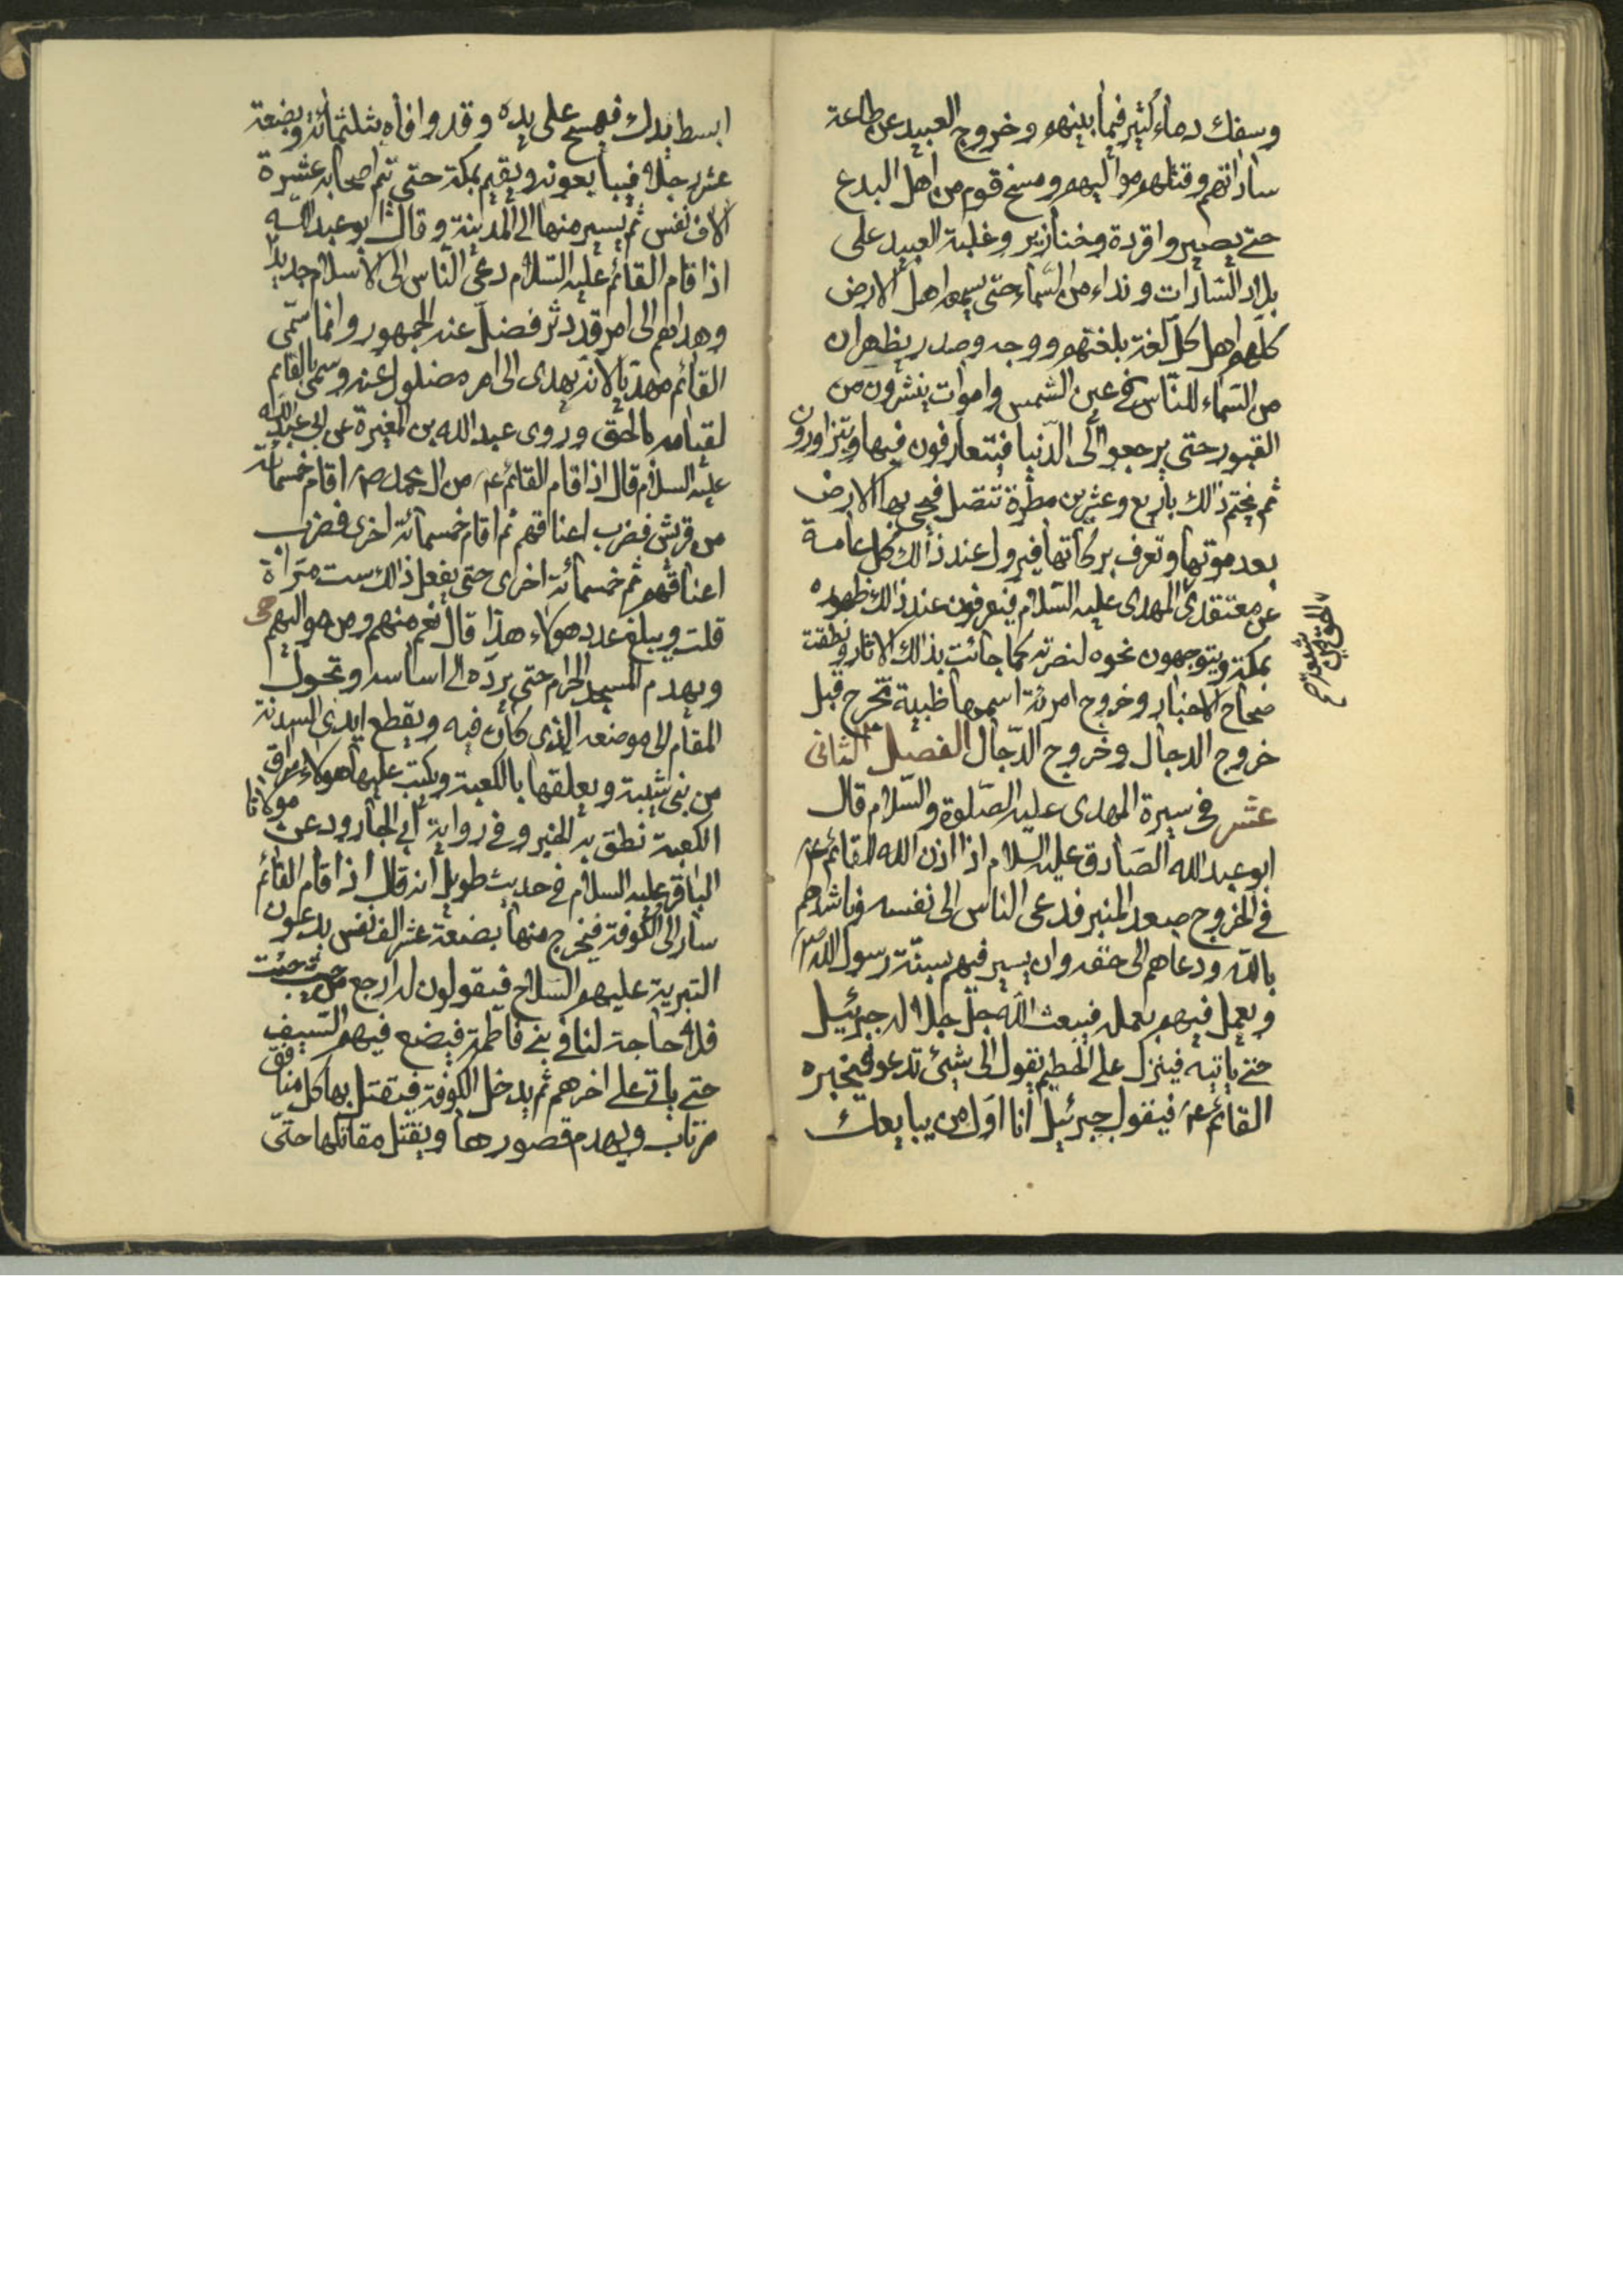 وسفك دماء كثير فيما بينهم وخروج العبيد عن طاعة
ساداتهم وقتلهم مواليهم ومسخ قوم من اهل البدع
حتى يصيروا قردة وخنازير وغلبة العبيد على
بلاد السادات ونداء من السماء حتى يسمعه اهل الارض
كلهم اهل كل لغة بلغتهم ووجه وصدر يظهران
من السماء للناس في عين الشمس واموات ينشرون من
القبور حتى يرجعوا الى الدنيا فيتعارفون فيها ويتزاورون
ثم يختم ذالك باربع وعشرين مطرة تتصل فيحيى بها الارض
بعد موتها وتعرف بركاتها فيزول عند ذالك كل عامة
عن معتقدى المهدى عليه السلام فيعرفون عند ذالك ظهوره
بمكة ويتوجهون نحوه لنصرته كما جائت بذالك الاثار ونطقت
صحاح الاخبار وخروج امرئة اسمها ظبية تخرج قبل
خروج الدجال وخروج الدجال الفصل الثانى
عشر في سيرة المهدى عليه الصلوة والسلام قال
ابو عبد الله الصادق عليه السلام اذا اذن الله القائم ع
في الخروج صعد المنبر فدعى الناس الى نفسه وناشدهم
بالله ودعاهم الى حقه وان يسير فيهم سنة رسول الله ص
ويعمل فيهم بعمله فيبعث الله جل جلاله جبرئيل
حتى ياتيه فينزل على الحطيم يقول الى شيئ تدعو فيخبره
القائم ع فيقول جبرئيل انا اول من يبايعك
الحق من شيعته
ابسط يدك فيمسح على يده وقد وافاه بثلثمائة وبضعة
عشر رجلا فيبايعونه ويقيم بمكة حتى تتم اصحابه عشرة
الاف نفس ثم يسير منها الى المدينة وقال ابو عبد الله
اذا قام القائم عليه السلام دعى الناس الى الاسلام جديدا
وهداهم الى امر قد دثر فضل عنه الجمهور وانما سمى
القائم مهديا لانه يهدى الى امر مضلول عنه وسمى بالقائم
لقيامه بالحق وروى عبد الله بن المغيرة عن ابى عبد الله
عليه السلام قال اذا قام القائم ع من ال محمد ص اقام خمسمائة
من قريش فضرب اعناقهم ثم اقام خمسمائة اخرى فضرب
اعناقهم ثم خمسمائة اخرى حتى يفعل ذالك ست مرات
قلت ويبلغ عدد هولاء هذا قال نعم منهم ومن مواليهم
ويهدم المسجد الحرام حتى يرده الى اساسه وتحول
المقام الى موضعه الذى كان فيه ويقطع ايدى السدنة
من بنى شيبة ويعلقها بالكعبة ويكتب عليها هولاء سراق
الكعبة نطق به الخبر وفي رواية ابى الجارود عن مولانا
الباقر عليه السلام في حديث طويل انه قال اذا قام القائم
سار الى الكوفة فيخرج منها بضعة عشر الف نفس يدعون
التبرية عليهم السلاح فيقولون له ارجع من حيث جئت
فلا حاجة لنا في بنى فاطمة فيضع فيهم السيف
حتى ياتى على اخرهم ثم يدخل الكوفة فيقتل بها كل منافق
مرتاب ويهدم قصورها ويقتل مقاتلها حتى